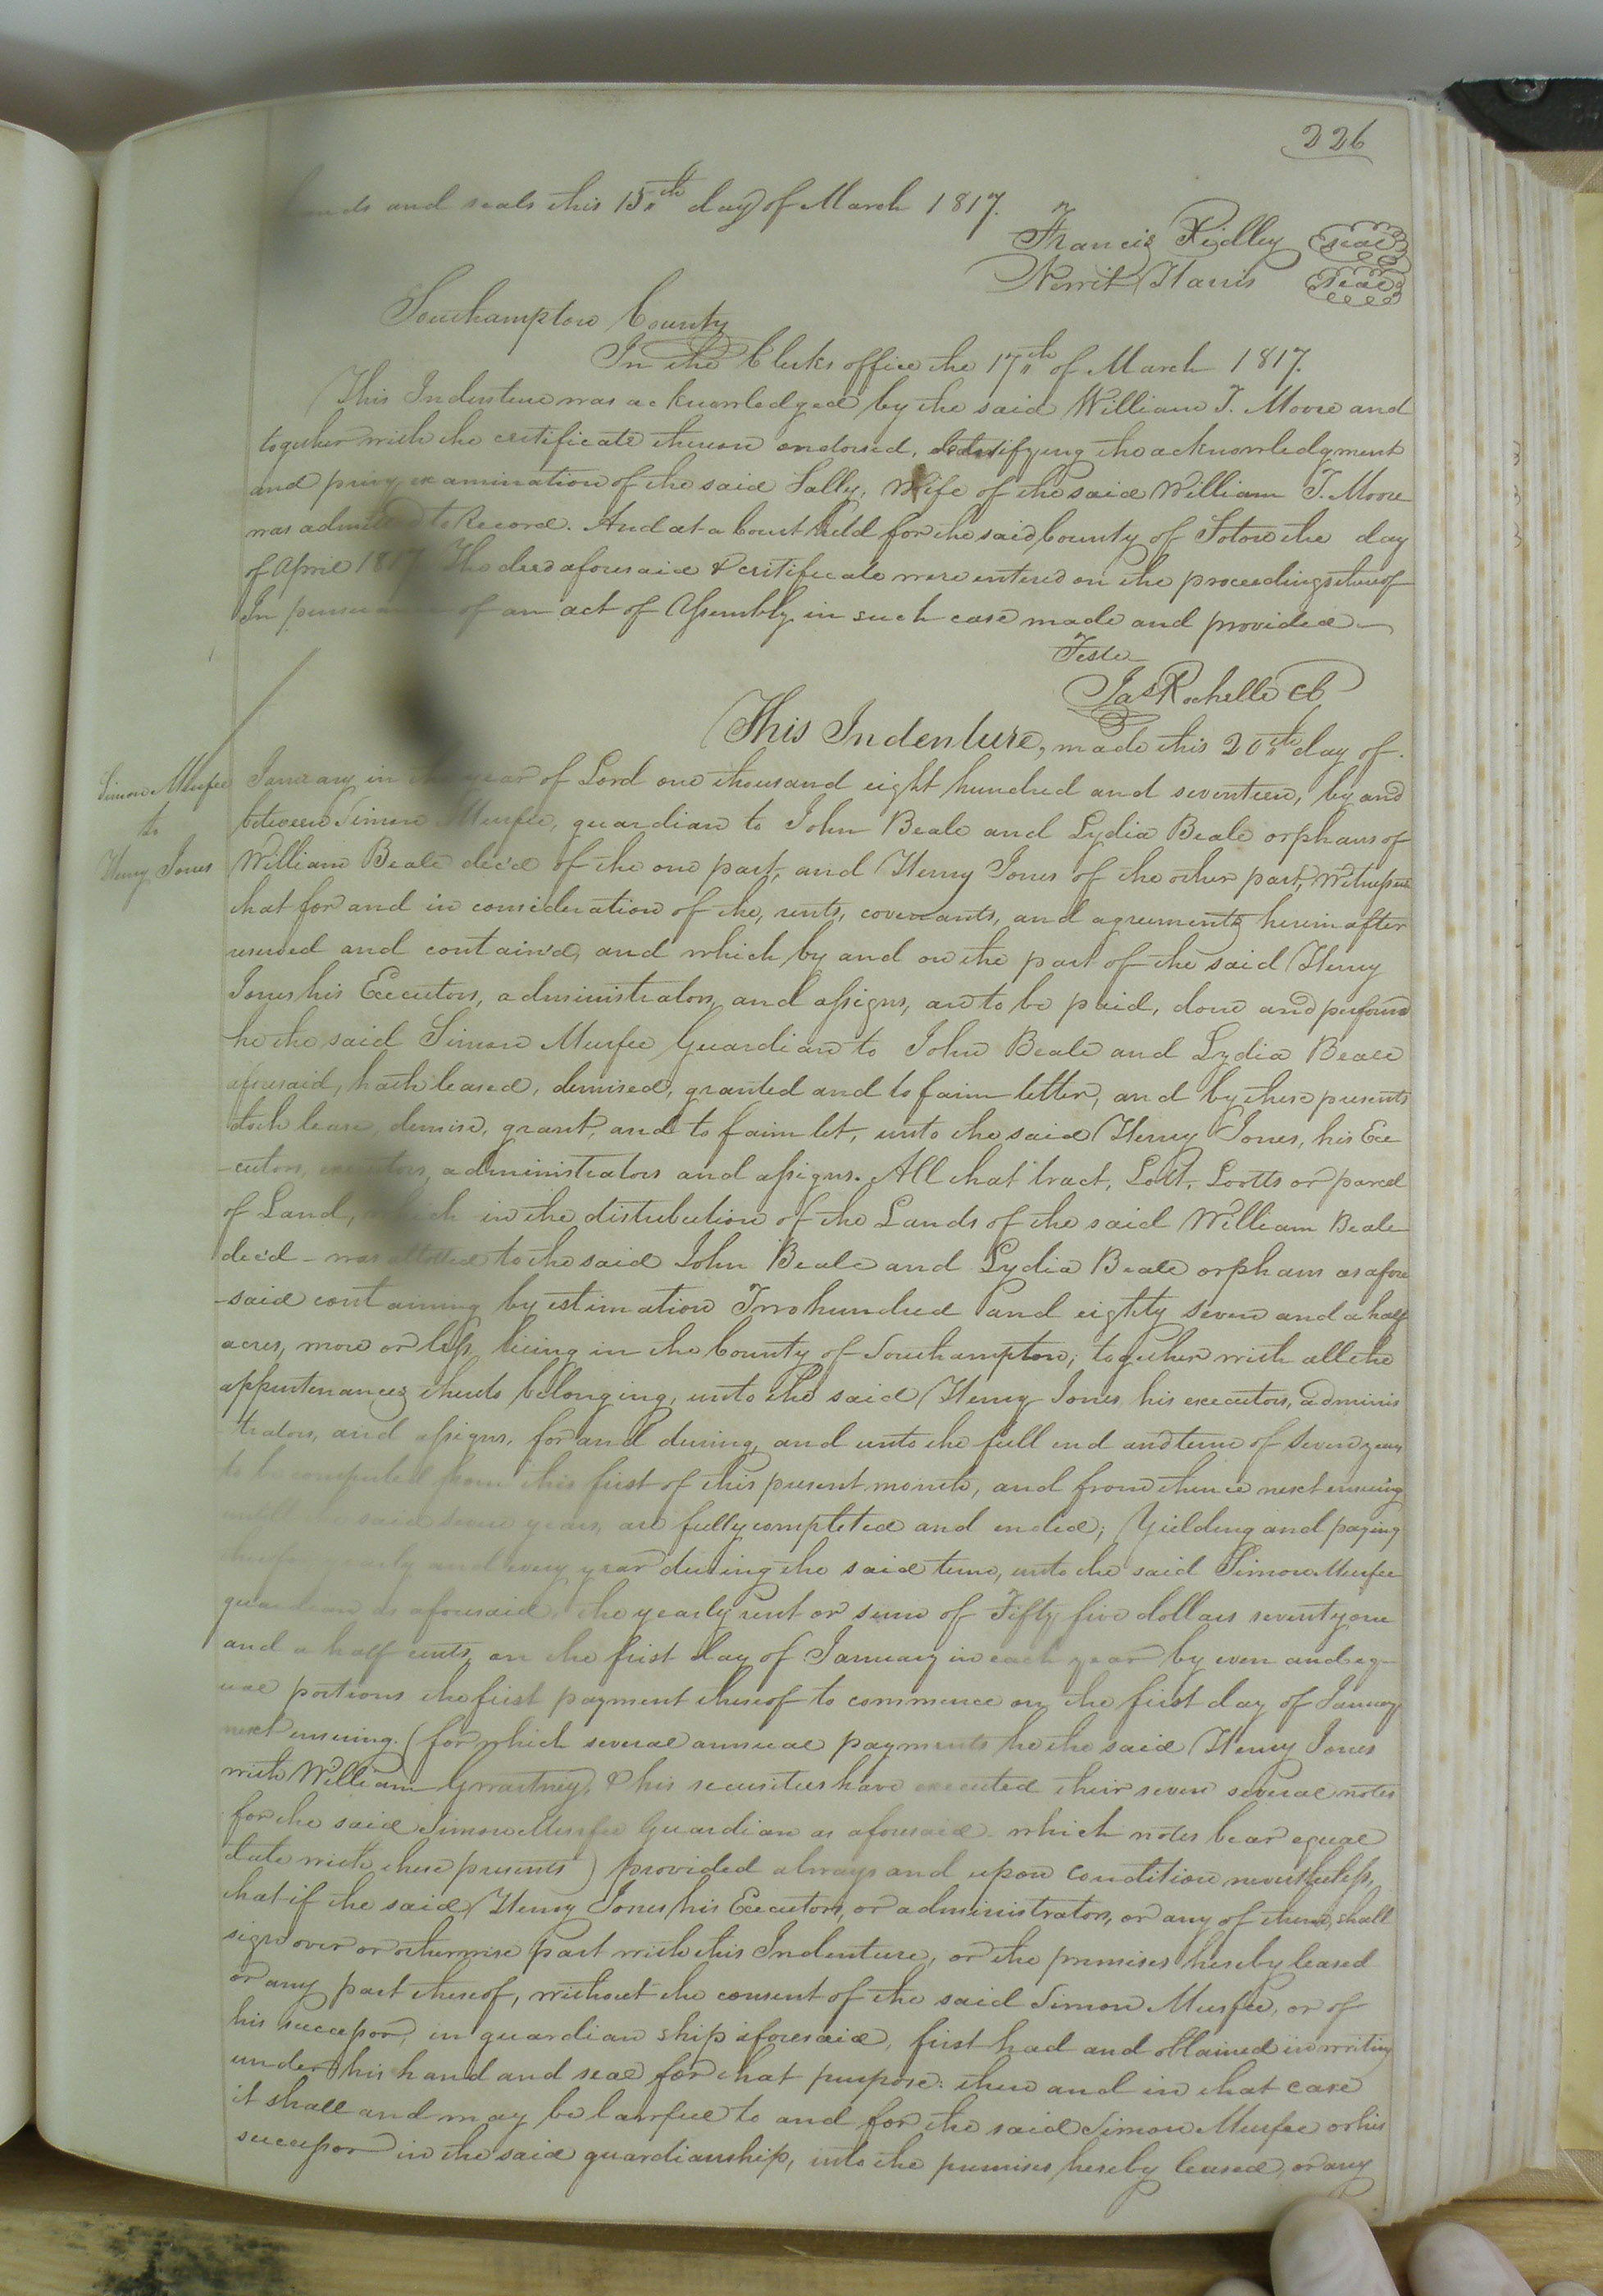 226
and seals this 15th day of March 1817.
Francis Ridley seal
Newit Harris seal
Southampton County
In the Clerks office the 17th of March 1817.
This Indenture was acknowledged by the said William T. Moore and
together with the certificate thereon endorsed, testifying the acknowledgment
and privy examination of the said Sally, Wife of the said William T. Moore
was admitted to Record. And at a Court held for the said County of Soton the day
of April 1817 The deed aforesaid & certificate were entered on the proceedings thereof
In pursuance of an act of Assembly in such case made and provided
Teste
Jas Rochelle CC
This Indenture, made this 20th day of
Simon Murfee
to
Henry Jones
January in the year of Lord one thousand eight hundred and seventeen, by and
between Simon Murfee, guardian to John Beale and Lydia Beale orphans of
William Beale dec'd of the one part, and Henry Jones of the other part, Witnesseth
that for and in consideration of the, rents, covenants, and agreements herein after
reserved and contain'd, and which by and on the part of the said Henry
Jones his Executors, administrators, and assigns, are to be paid, done and performd
he the said Simon Murfee Guardian to John Beale and Lydia Beale
aforesaid, hath leased, demised, granted and to farm letter, and by these presents
doth lease, demise, grant, and to farm let, unto the said Henry Jones, his Exe
-cutors, executors, administrators and assigns. All that tract, Lott, Lootts or parcel
of Land, which in the distribution of the Lands of the said William Beale
dec'd - was allotted to the said John Beale and Lydia Beale orphans as afore
-said containing by estimation Two hundred and eighty seven and a half
acres, more or less, lieing in the County of Southampton; together with all the
appurtenances thereto belonging, unto the said Henry Jones his executors, adminis
trators, and assigns, for and during, and unto the full end and term of seven years
to be computed from this first of this present month, and from thence next ensuing
untill the said seven years, are fully completed and ended; Yielding and paying
therefor yearly and every year during the said term, unto the said Simon Murfee
guardian as aforesaid, the yearly rent or sum of Fifty five dollars seventy one
and a half cents, on the first day of January in each year by even and eq-
ual portions the first payment thereof to commence on the first day of January
next ensuing. (for which several annual payments he the said Henry Jones
with William Gwaltney, & his securities have executed their seven several notes
for the said Simon Murfee Guardian as aforesaid - which notes bear equal
date with these presents) provided always and upon condition nevertheless,
that if the said Henry Jones his Executors, or administrators, or any of them, shall
sign over or otherwise part with this Indenture, or the premises hereby leased
or any part thereof, without the consent of the said Simon Murfee, or of
his successor, in guardian ship aforesaid, first had and obtained in writing
under his hand and seal for that purpose: then and in that case
it shall and may be lawfull to and for the said Simon Murfee or his
successor in the said guardianship, into the premises hereby leased, or any